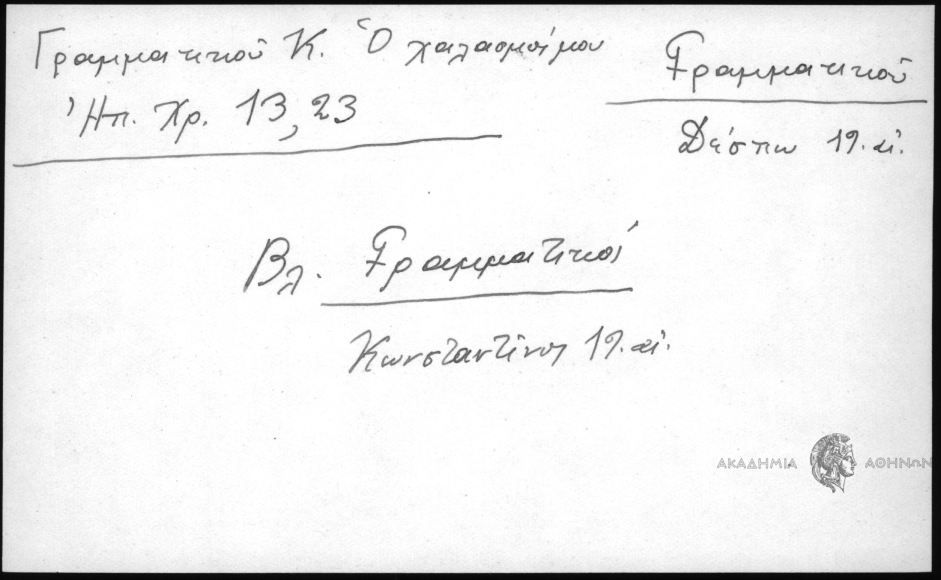 Γραμματικοῦ Κ. Ὁ χαλασμός μου
Ἠπ. Χρ. 13, 23
Γραμματικοῦ
Δέσπω 19. αἰ.
Βλ. Γραμματικός
Κωνσταντῖνος 19. αἰ.
ΑΚΑΔΗΜΙΑ ΑΘΗΝΩΝ